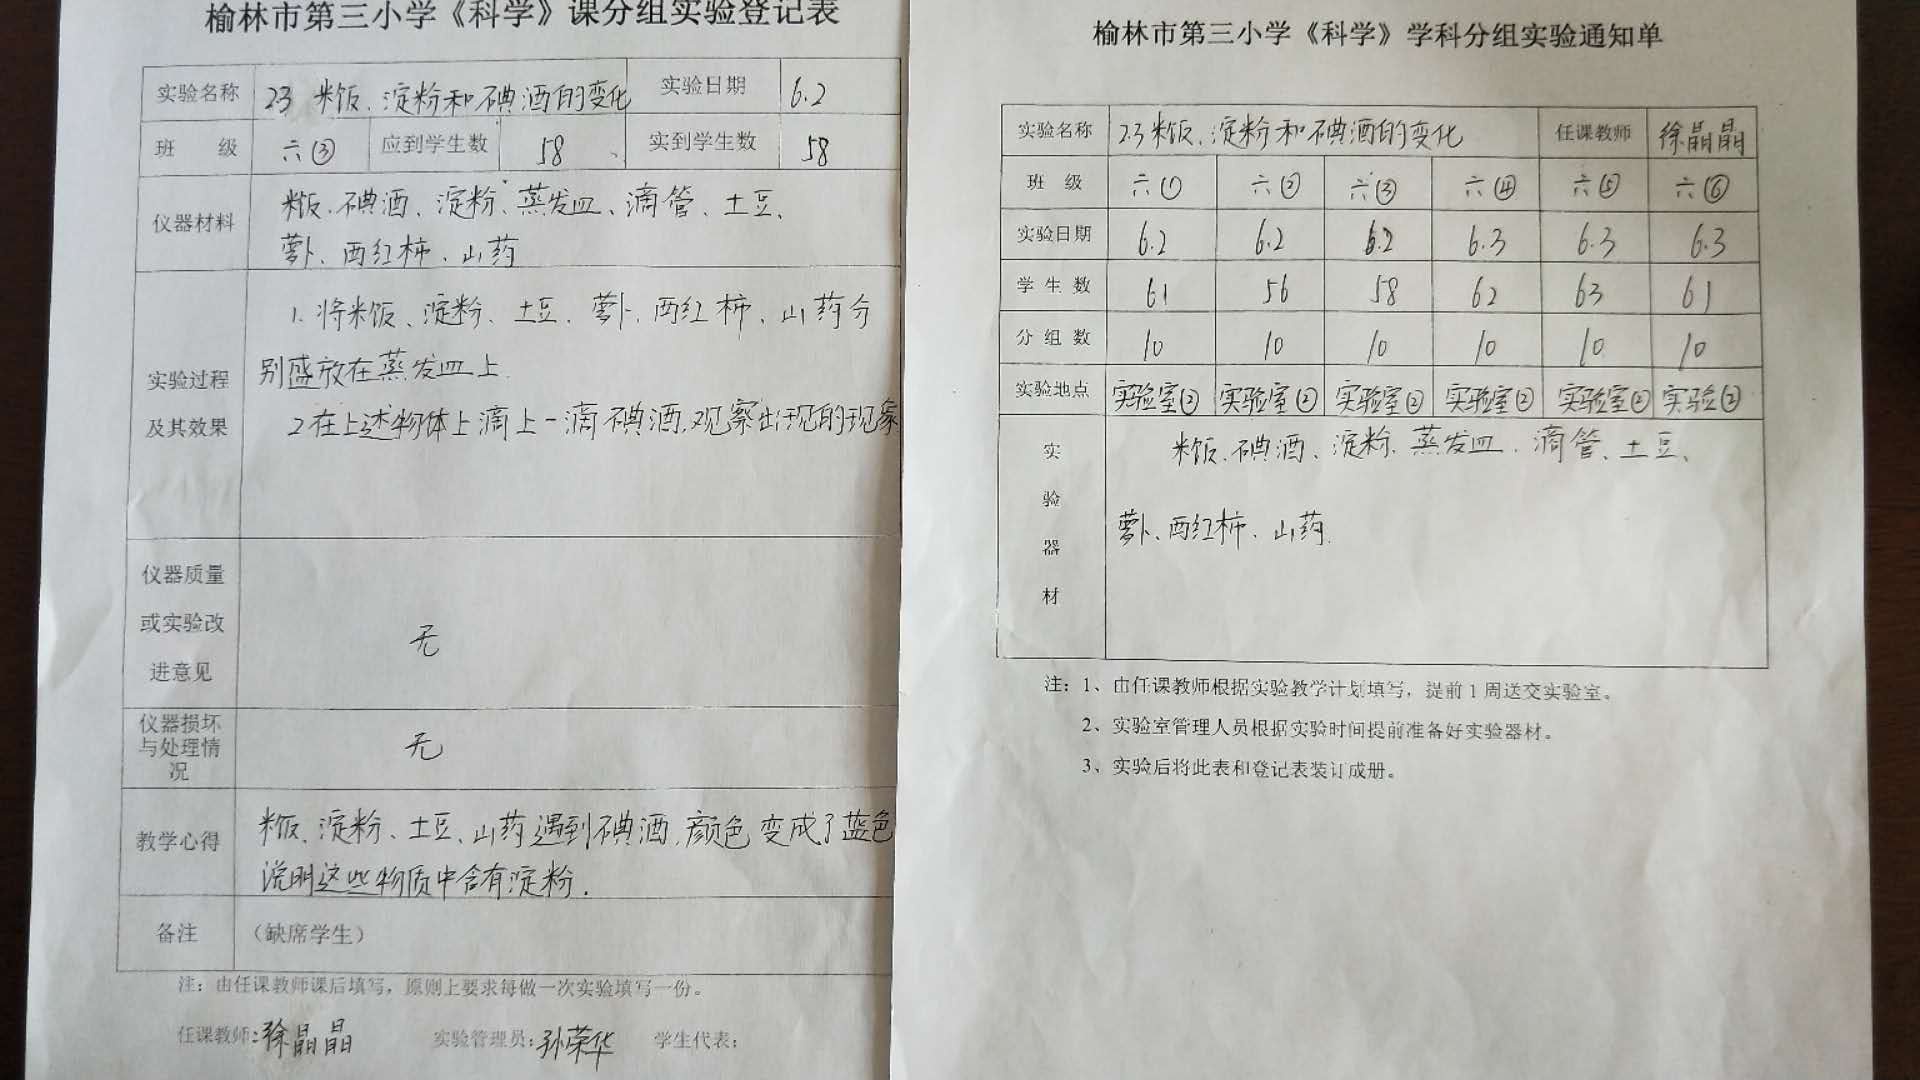 榆林市第三小学《科学》课分组实验登记表
实验名称 23 米饭、淀粉和碘酒的变化 实验日期 6.2
班 级 六③ 应到学生数 58 实到学生数 58
仪器材料
米饭、碘酒、淀粉、蒸发皿、滴管、土豆、
萝卜、西红柿、山药
实验过程
及其效果
1. 将米饭、淀粉、土豆、萝卜、西红柿、山药分
别盛放在蒸发皿上.
2 在上述物体上滴上一滴碘酒,观察出现的现象
仪器质量
或实验改
进意见
无
仪器损坏
与处理情
况
无
教学心得
米饭、淀粉、土豆、山药遇到碘酒,颜色变成了蓝色
说明这些物质中含有淀粉.
备注 （缺席学生）
注：由任课教师课后填写，原则上要求每做一次实验填写一份。
任课教师：徐晶晶 实验管理员：孙荣华 学生代表：
榆林市第三小学《科学》学科分组实验通知单
实验名称 23 米饭、淀粉和碘酒的变化 任课教师 徐晶晶
班 级 六① 六② 六③ 六④ 六⑤ 六⑥
实验日期 6.2 6.2 6.2 6.3 6.3 6.3
学 生 数 61 56 58 62 63 61
分 组 数 10 10 10 10 10 10
实验地点 实验室② 实验室② 实验室② 实验室② 实验室② 实验②
实
验
器
材
米饭、碘酒、淀粉、蒸发皿、滴管、土豆、
萝卜、西红柿、山药.
注：1、由任课教师根据实验教学计划填写，提前1周送交实验室。
2、实验室管理人员根据实验时间提前准备好实验器材。
3、实验后将此表和登记表装订成册。